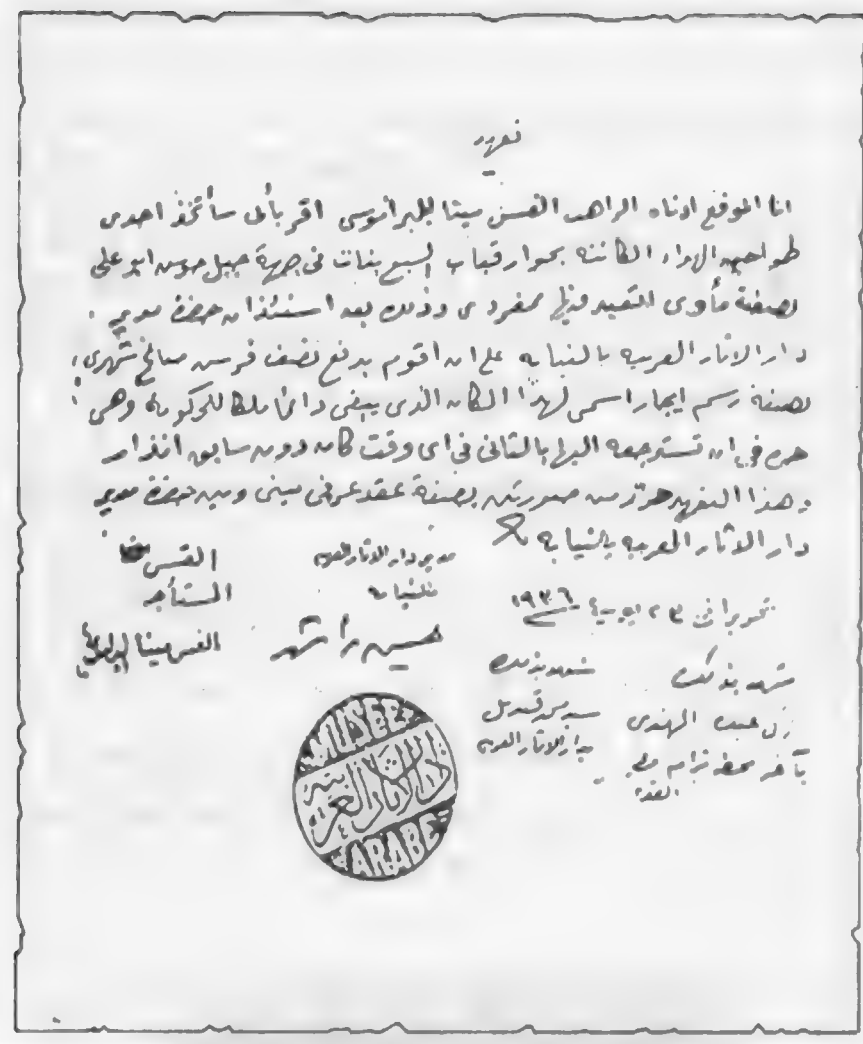 تعهد
انا الموقع ادناه الراهب القس مينا البراموسى اقر بأنى سأتخذ احدى
طواحين الهواء الكائنه بجوار قباب السبع بنات فى جهة جبل حوس ابو على
بصفة مأوى للتعبد فيها بمفردى وذلك بعد استئذان حضرة مدير
دار الاثار العربيه بالنيابه على ان اقوم بدفع نصف قرش صاغ شهرى
بصفة رسم ايجار اسمى لهذا المكان الذى يبقى دائما ملكا للحكومة وهى
حره فى ان تسترجعه اليها بالتالى فى اى وقت كان دون سابق انذار
وهذا التعهد حرر من صورتين بصفة عقد عرفى بينى وبين حضرة مدير
دار الاثار العربيه بالنيابه
تحريرا فى ٢٣ يونية ١٩٣٦
القس
المستأجر
القس مينا البراموسى
مدير دار الاثار العربيه
بالنيابه
حسين راشد
شهد بذلك
سيد قنديل
بدار الاثار العربيه
شهد بذلك
الهندى
بآخر محطه ترام
MUSÉE
دار الاثار العربيه
ARABE